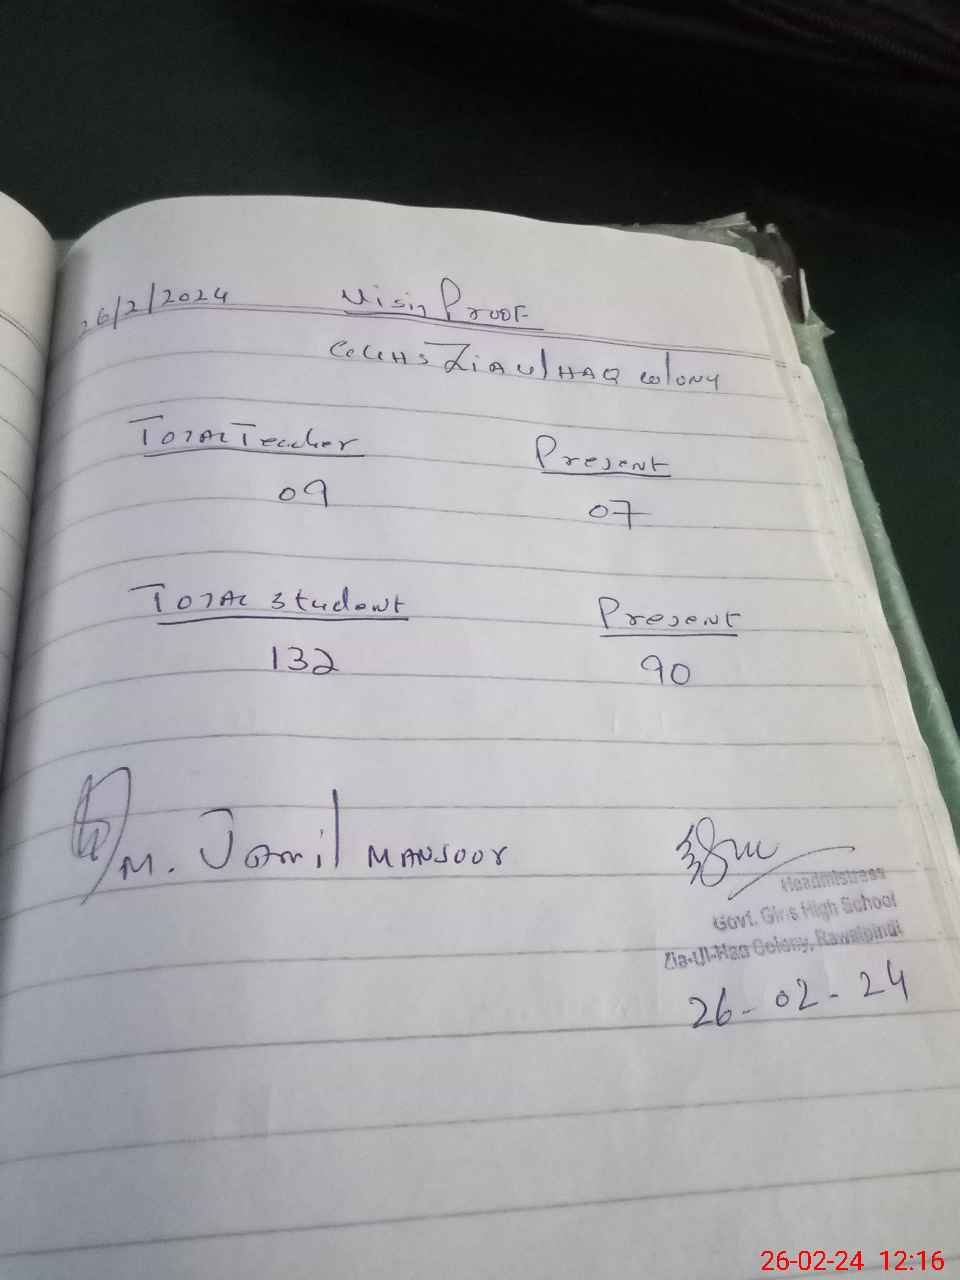 26/2/2024 Visit Proof
GGHS Zia ul HAQ colony
Total Teacher Present
09 07
Total Student Present
132 90
M. Jamil MANSOOR
Headmistress
Govt. Girls High School
Zia-Ul-Haq Colony, Rawalpindi
26-02-24
26-02-24 12:16